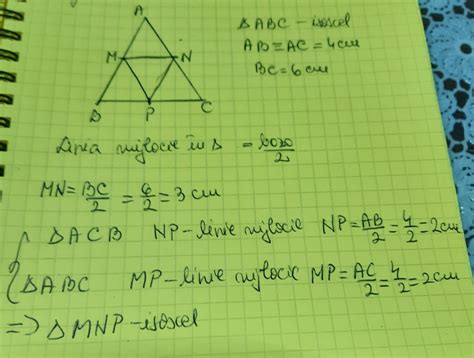 A
M N
B P C
ΔABC - isoscel
AB = AC = 4cm
BC = 6cm
Linia mijlocie în Δ = baza/2
MN = BC/2 = 6/2 = 3 cm
ΔACB NP - linie mijlocie NP = AB/2 = 4/2 = 2cm
ΔABC MP - linie mijlocie MP = AC/2 = 4/2 = 2cm
=> ΔMNP - isoscel